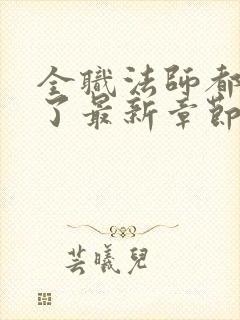 全職法師都
了最新章節
芸曦兒